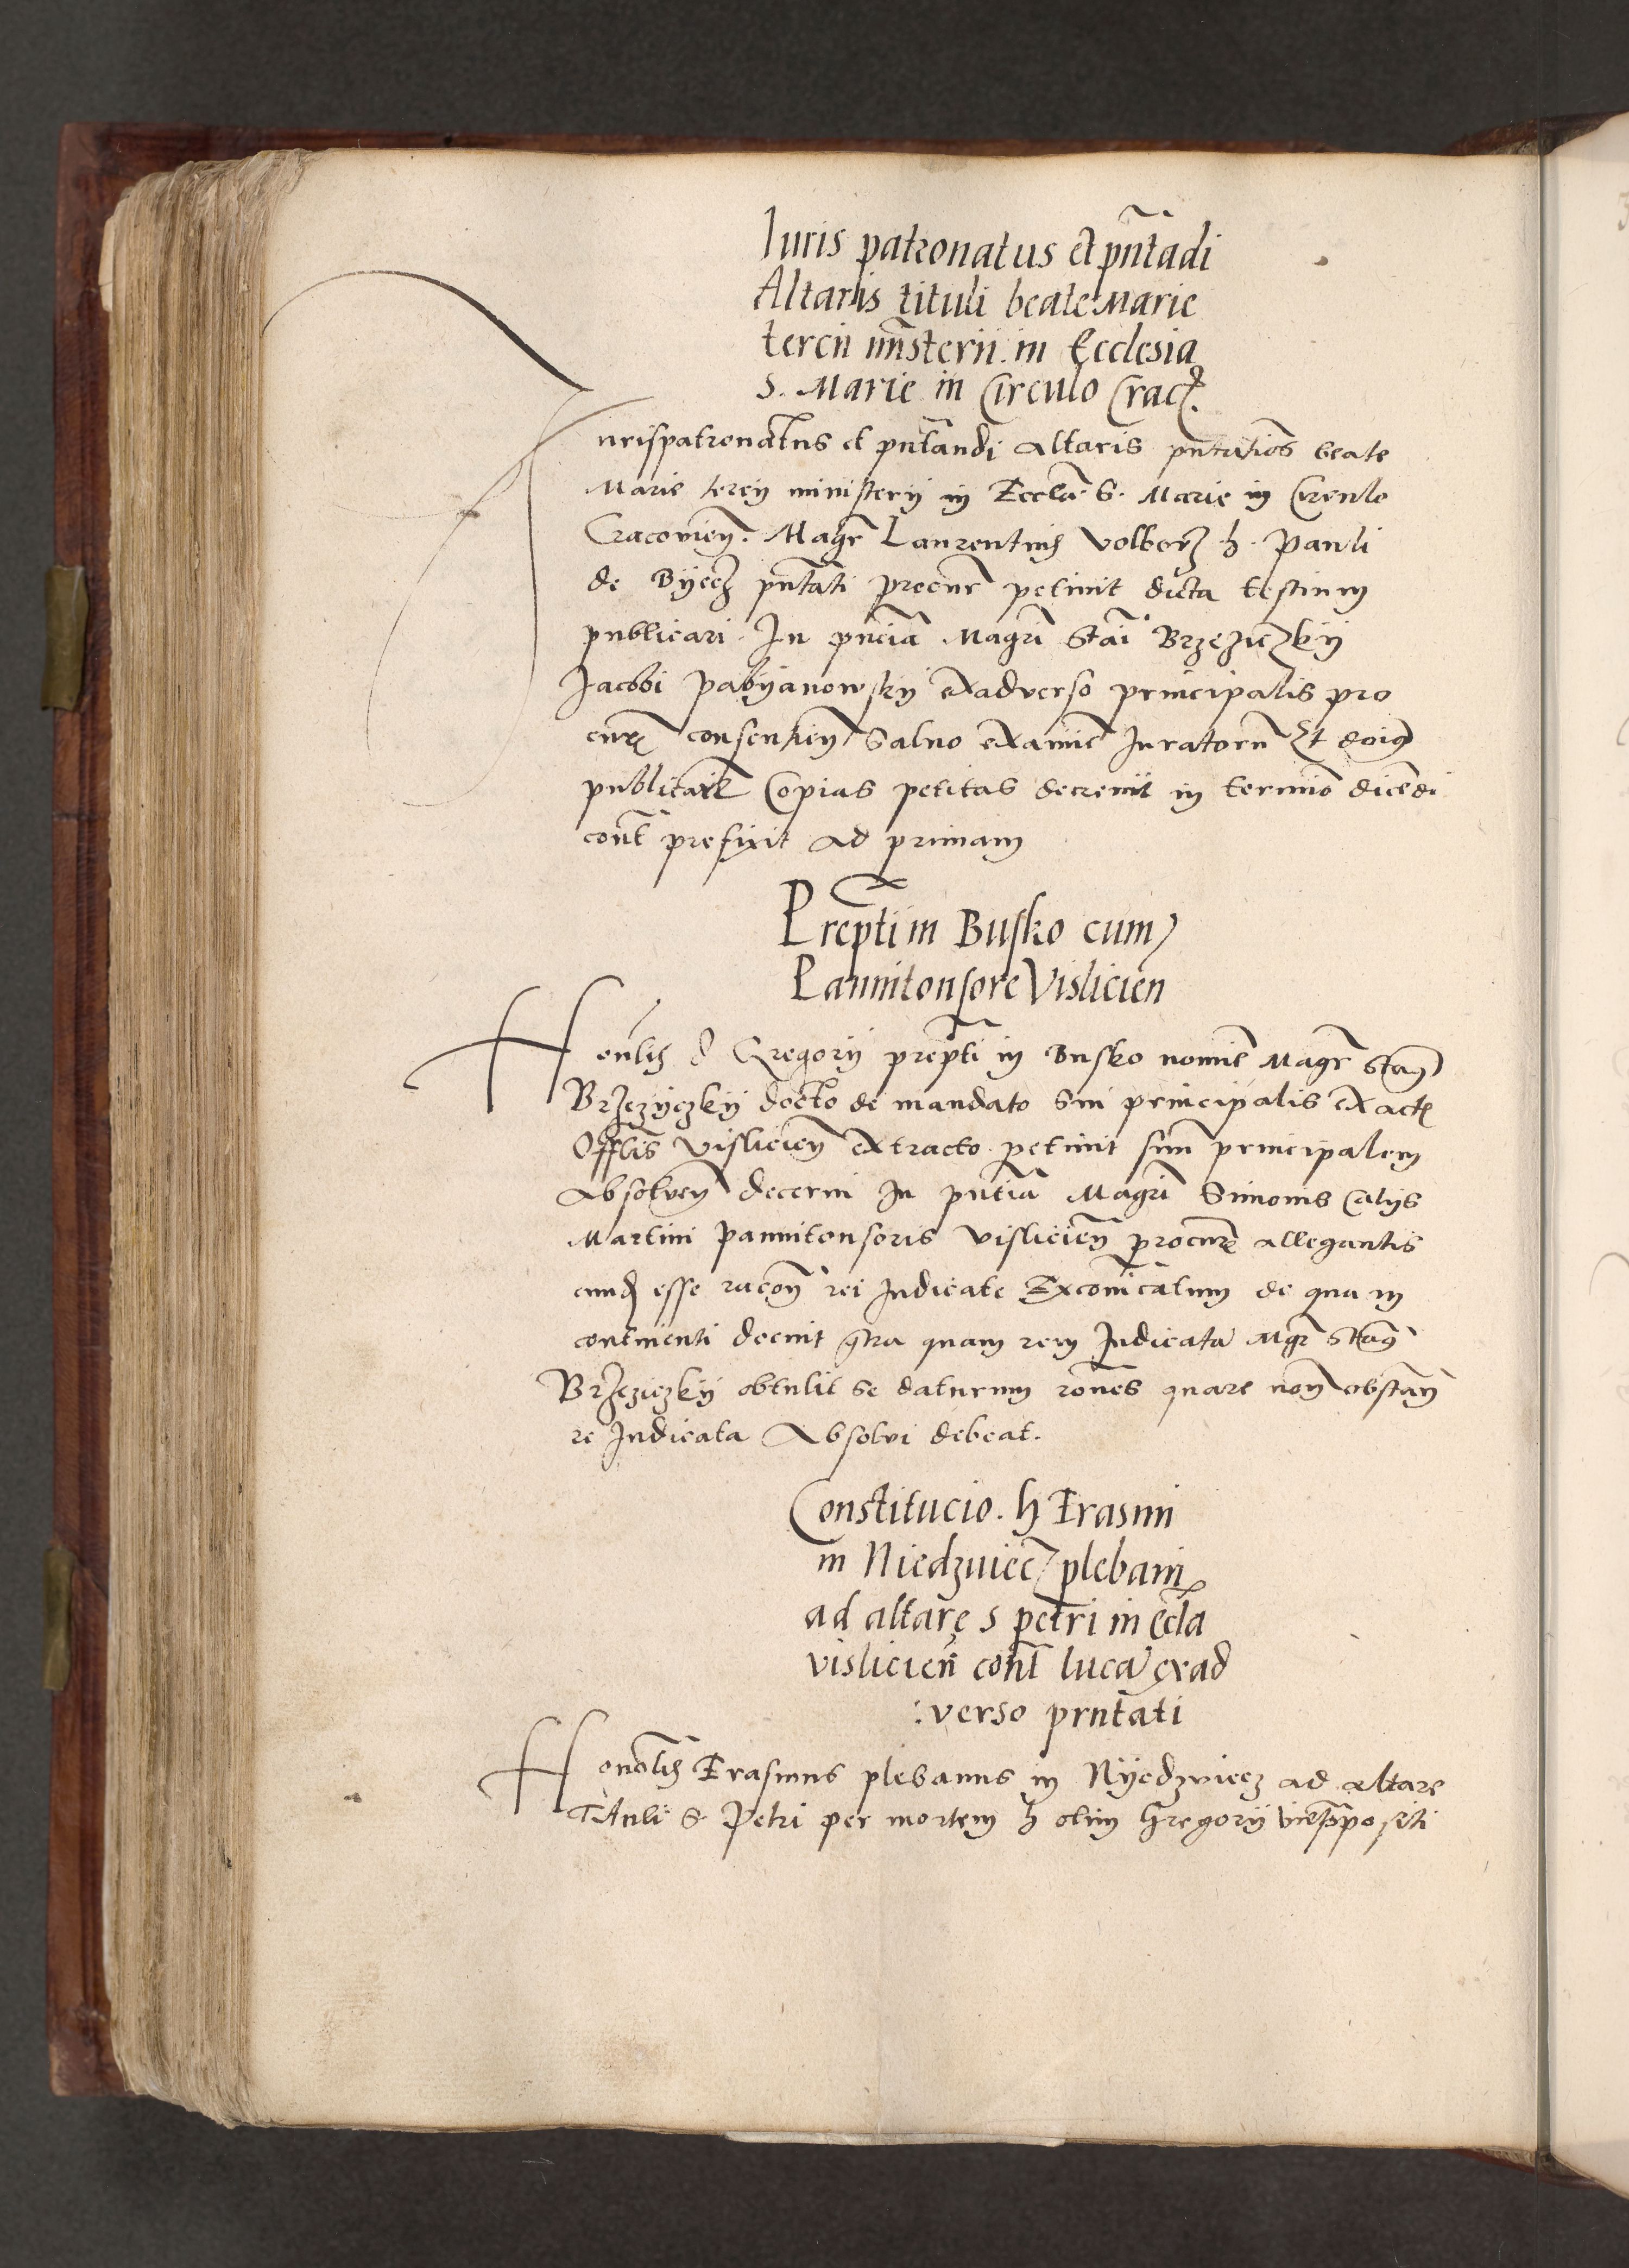 Iuris patronatus et pn̄tādi
Altaris tituli beate Marie
tercii mn̄sterii in Ecclesia
S. Marie in Circulo Crac.
Iurispatronatus et pn̄tandi altaris pn̄tatiōs beate
Marie tercij ministerij in Eccl̄a S. Marie in Circulo
Cracovien̄. Magr̄ Laurentius Volborz h. Pauli
de Byecz pn̄tati procur̄ petiuit dicta testium
publicari. In pn̄ciā Magr̄i Stāi Brzeziczkij
Jacobi Pabyanowsky exadverso principalis pro
cur̄ consentien̄ Saluo examīe Juratoru̅ Et dn̄s
publicauit Copias petitas decreuit in termīo dicēdi
cont̄ prefixit ad primam
Prep̄ti in Busko cum
Pannitonsore Vislicien
Honl̄is d Gregorij prep̄ti in Busko nomīe Magr̄ Stan̄
Brzezyczkij docto de mandato sui principalis ex act̄
Offl̄is Vislicien̄ extracto petiuit suu̅ principalem
absoluen̄ decerni In pn̄tiā Magr̄i Simonis
Martini Pannitonsoris Vislicien̄ procur̄ allegantis
eund̄ esse racōn̄ rei Iudicate Excōicatum de qua in
continenti docuit q̄tra quam rem Iudicatā Mgr̄ Stan̄
Brzeziczkij obtulit se daturum rōnes quare non obstan̄
re Iudicata Absolvi debeat.
Constitucio. h Erasmi
in Niedzviecz plebani
ad altare S petri in ecl̄a
vislicien̄ cont̄ lucā exad
:verso prn̄tati
Honorl̄is Erasmus plebanus in Nyedzviecz ad altare
Tituli S. Petri per mortem h olim Gregorij vicep̄positi